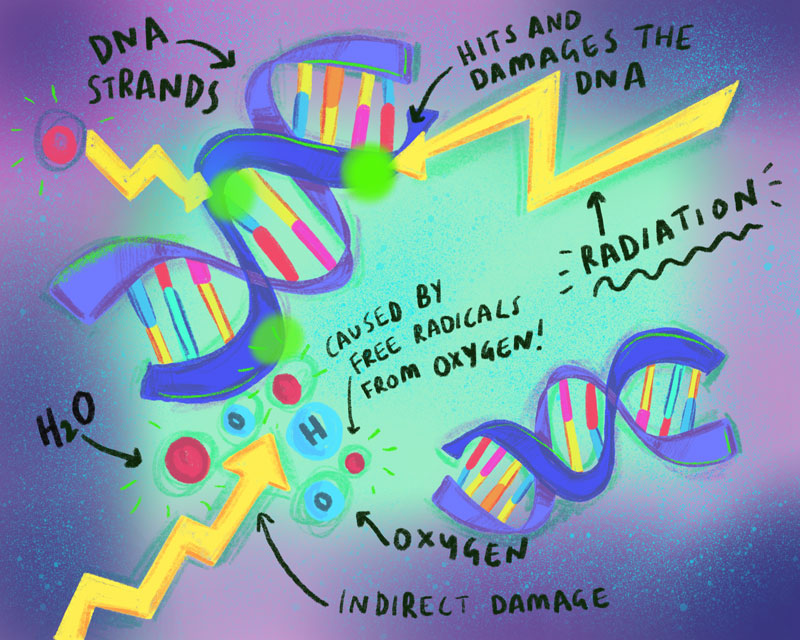 DNA
STRANDS
HITS AND
DAMAGES THE
DNA
RADIATION
CAUSED BY
FREE RADICALS
FROM OXYGEN!
H2O
O
H
O
OXYGEN
INDIRECT DAMAGE